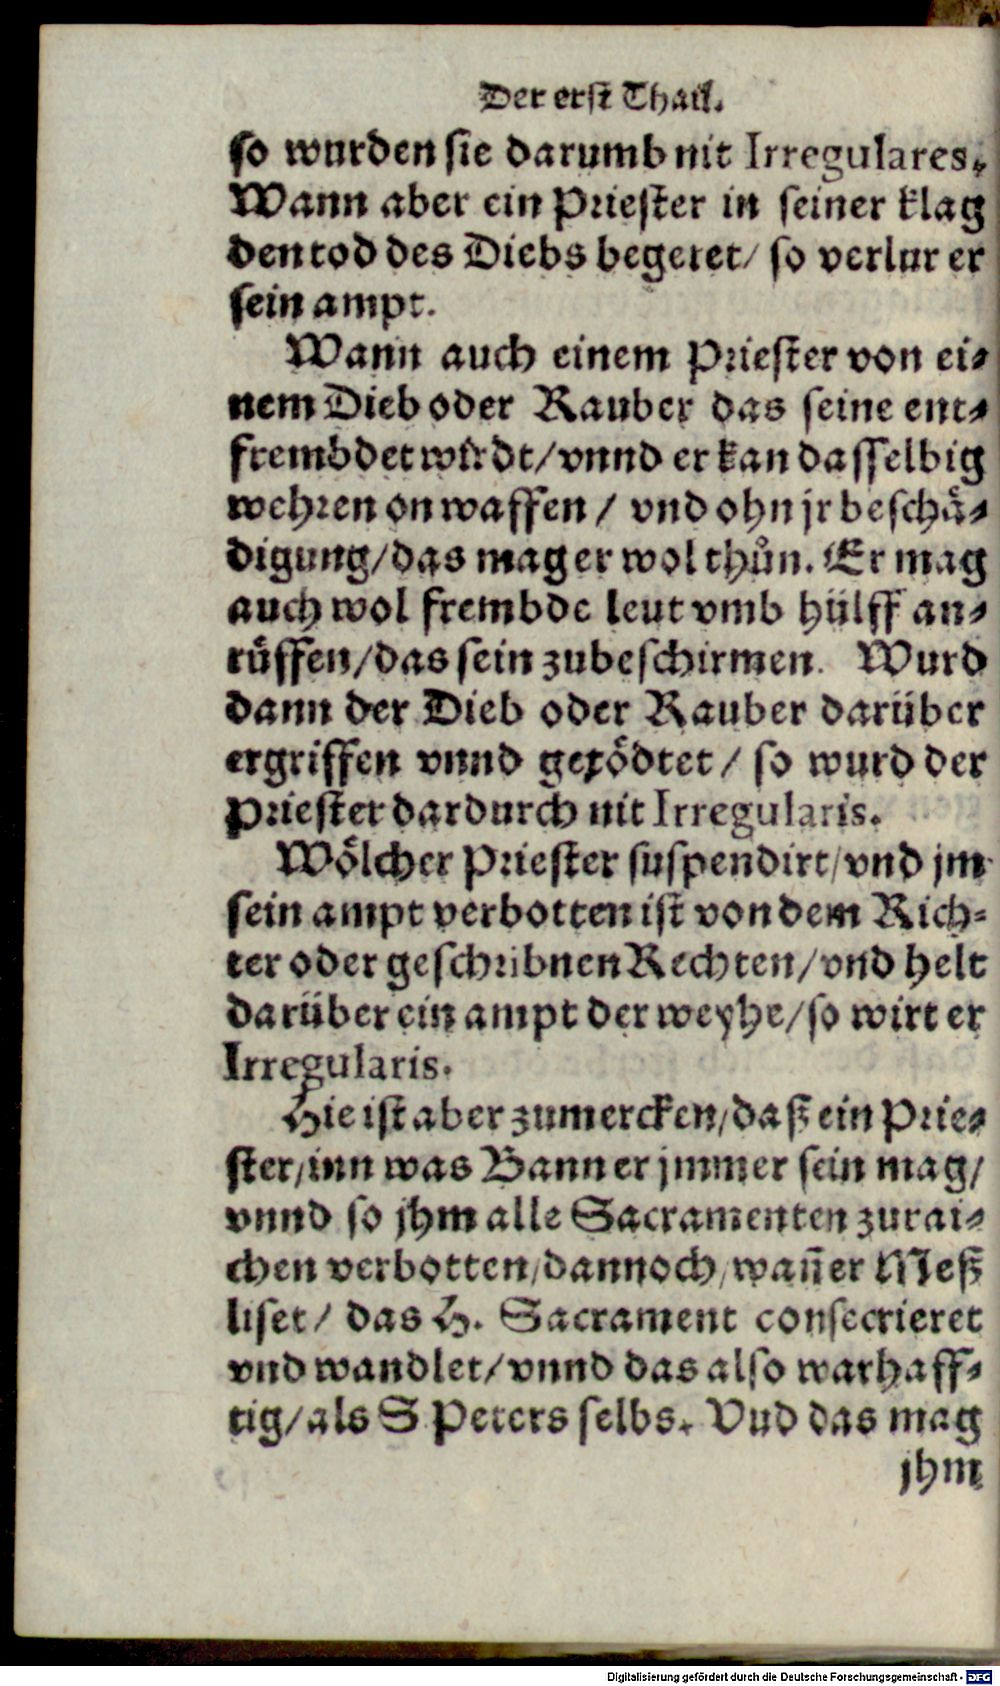 Der erst Thail.
so wurden sie darumb nit Irregulares.
Wann aber ein Priester in seiner klag
den tod des Diebs begeret/ so verlur er
sein ampt.
Wann auch einem Priester von ei-
nem Dieb oder Rauber das seine ent-
frembdet wůrdt/ vnnd er kan dasselbig
wehren on waffen / vnd ohn jr beschå-
digung/ das mag er wol thůn. Er mag
auch wol frembde leut vmb hülff an-
rüffen/ das sein zubeschirmen. Wurd
dann der Dieb oder Rauber darüber
ergriffen vnnd getödtet / so wurd der
Priester dardurch nit Irregularis.
Wölcher Priester suspendirt/ vnd jm
sein ampt verbotten ist von dem Rich-
ter oder geschribnen Rechten/ vnd helt
darüber ein ampt der weyhe/ so wirt er
Irregularis.
Hie ist aber zumercken/ daß ein Prie-
ster/ inn was Bann er jmmer sein mag/
vnnd so jhm alle Sacramenten zurai-
chen verbotten/ dannoch/ wañ er Meß
liset / das H. Sacrament consecrieret
vnd wandlet/ vnnd das also warhaff-
tig/ als S Peters selbs. Vnd das mag
jhm
Digitalisierung gefördert durch die Deutsche Forschungsgemeinschaft - DFG